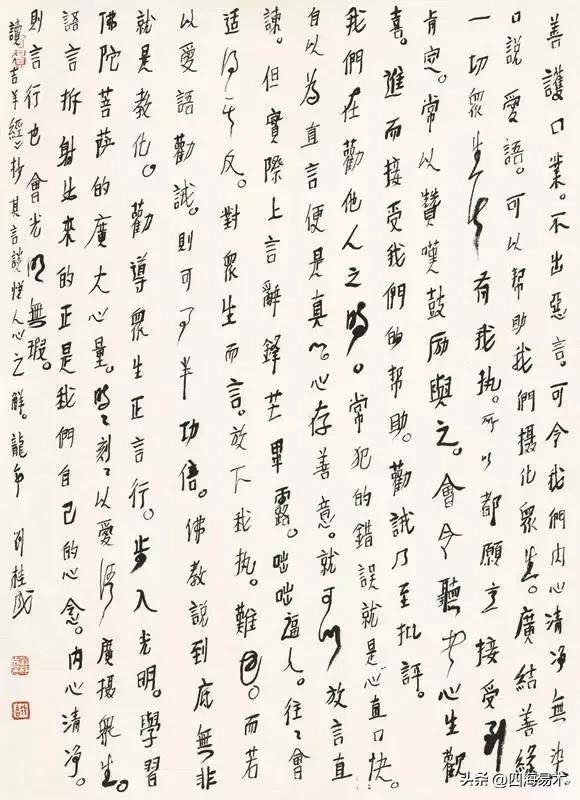 善護口業。不出惡言。可令我們內心清淨無染。
口說愛語。可以幫助我們攝化眾生。廣結善緣
一切眾生皆有我執。所以都願意接受到
肯定。常以贊嘆鼓励與之。會令聽者心生歡
喜。進而接受我們的幫助。勸誡乃至批評。
我們在勸他人之時。常犯的錯誤就是心直口快。
自以為直言便是真心。心存善意。就可以放言直
諫。但實際上言辭鋒芒畢露。咄咄逼人。往往會
适得其反。對眾生而言。放下我执。難。而若
以愛語勸誡。則可事半功倍。佛教說到底無非
就是教化。勸導眾生正言行。步入光明。學習
佛陀菩萨的廣大心量。時時刻刻以愛語廣攝眾生。
語言折射出來的正是我們自己的心念。内心清淨。
則言行也會光明無瑕。
讀吉羊經抄其言談悅人心之解。龍年 劉桂成
头条 @四海易术